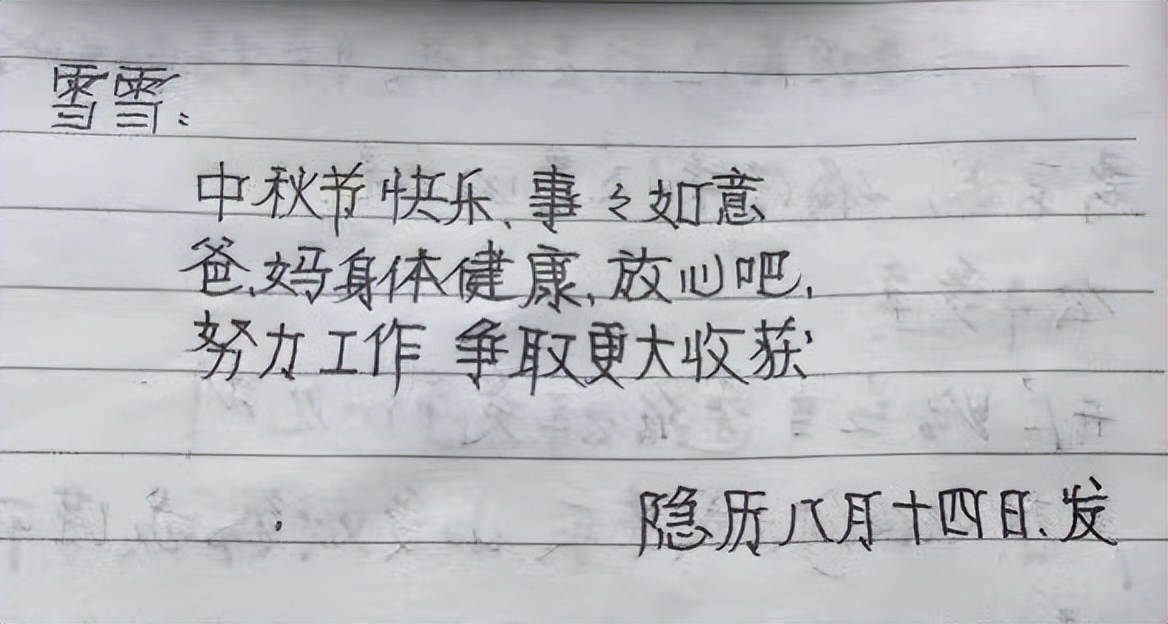 雪雪:
中秋节快乐、事々如意
爸、妈身体健康、放心吧,
努力工作 争取更大收获
隐历八月十四日、发